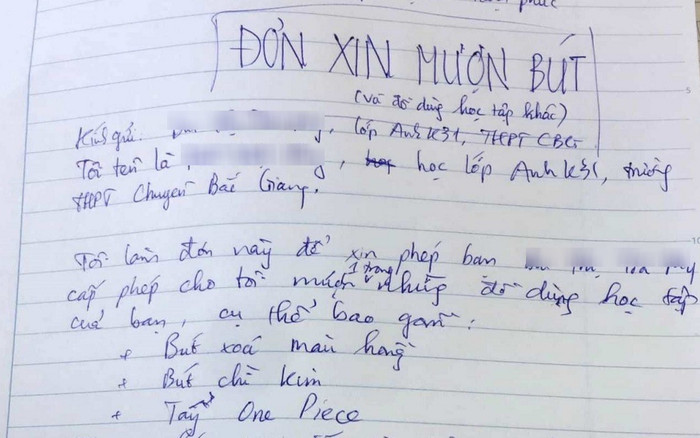 phúc
ĐƠN XIN MƯỢN BÚT
(Và đồ dùng học tập khác)
Kính gửi: , lớp Anh K31, THPT CBG
Tôi tên là , học lớp Anh K31, trường
THPT Chuyên Bắc Giang.
Tôi làm đơn này để xin phép bạn
cấp phép cho tôi mượn 1 trong những đồ dùng học tập
của bạn, cụ thể bao gồm:
+ Bút xoá màu hồng
+ Bút chì kim
+ Tẩy One Piece